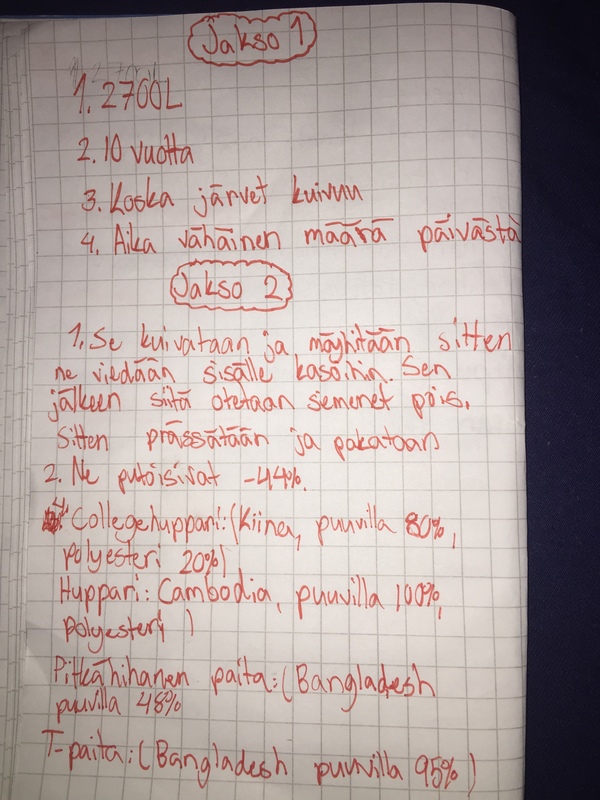 Jakso 1
1. 2700L
2. 10 vuotta
3. Koska järvet kuivuu
4. Aika vähäinen määrä päivästä
Jakso 2
1. Se kuivataan ja möyhitään sitten
ne viedään sisälle kasoihin. Sen
jälkeen siitä otetaan siemenet pois.
Sitten prässätään ja pakataan
2. Ne putoisivat -44%.
4. Collegehuppari: (Kiina, puuvilla 80%,
polyesteri 20%)
Huppari: Cambodia, puuvilla 100%,
polyesteri )
Pitkähihanen paita: (Bangladesh
puuvilla 48%
T-paita: (Bangladesh puuvilla 95%)